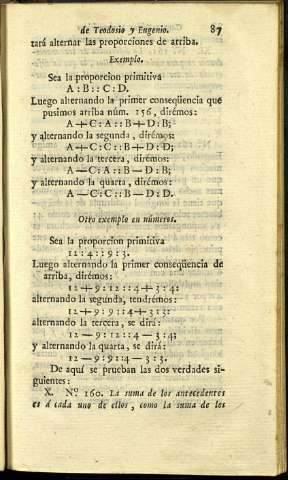 de Teodosio y Eugenio. 87
tará alternar las proporciones de arriba.
Exemplo.
Sea la proporcion primitiva
A : B :: C : D.
Luego alternando la primer conseqüencia que
pusimos arriba núm. 156, dirémos:
A + C : A :: B + D : B;
y alternando la segunda, dirémos:
A + C : C :: B + D : D;
y alternando la tercera, dirémos:
A — C : A :: B — D : B;
y alternando la quarta, dirémos:
A — C : C :: B — D : D.
Otro exemplo en números.
Sea la proporcion primitiva
12 : 4 :: 9 : 3.
Luego alternando la primer conseqüencia de
arriba, dirémos:
12 + 9 : 12 :: 4 + 3 : 4:
alternando la segunda, tendrémos:
12 + 9 : 9 :: 4 + 3 : 3:
alternando la tercera, se dirá:
12 — 9 : 12 :: 4 — 3 : 4;
y alternando la quarta, se dirá:
12 — 9 : 9 :: 4 — 3 : 3.
De aquí se prueban las dos verdades si-
guientes:
X. N.º 160. La suma de los antecedentes
es á cada uno de ellos, como la suma de los